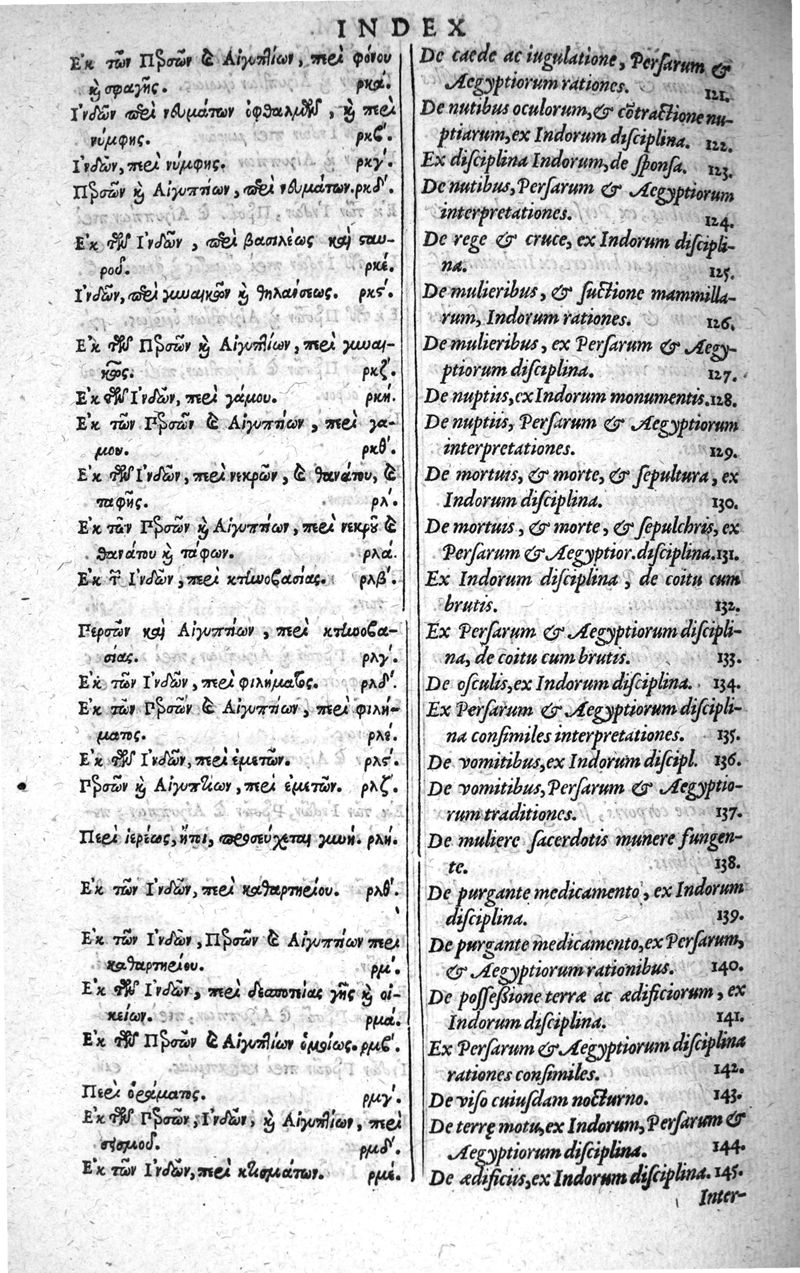 INDEX
Ἐκ τῶν Περσῶν & Αἰγυπτίων, περὶ φόνου
καὶ σφαγῆς. ρκά.
Ἰνδῶν περὶ νευμάτων ὀφθαλμῶν, καὶ περὶ
νύμφης. ρκβ΄.
Ἰνδῶν, περὶ νύμφης. ρκγ΄.
Περσῶν καὶ Αἰγυπτίων, περὶ νευμάτων. ρκδ΄.
Ἐκ τῶν Ἰνδῶν, περὶ βασιλέως καὶ σταυ-
ροῦ. ρκέ.
Ἰνδῶν, περὶ γυναικῶν καὶ θηλάσεως. ρκς΄.
Ἐκ τῶν Περσῶν καὶ Αἰγυπτίων, περὶ γυναι-
κῶν. ρκζ΄.
Ἐκ τῶν Ἰνδῶν, περὶ γάμου. ρκή.
Ἐκ τῶν Περσῶν & Αἰγυπτίων, περὶ γά-
μου. ρκθ΄.
Ἐκ τῶν Ἰνδῶν, περὶ νεκρῶν, & θανάτου, &
ταφῆς. ρλ΄.
Ἐκ τῶν Περσῶν καὶ Αἰγυπτίων, περὶ νεκροῦ &
θανάτου καὶ τάφων. ρλά.
Ἐκ τῶν Ἰνδῶν, περὶ κτηνοβασίας. ρλβ΄.
Περσῶν καὶ Αἰγυπτίων, περὶ κτηνοβα-
σίας. ρλγ΄.
Ἐκ τῶν Ἰνδῶν, περὶ φιλήματος. ρλδ΄.
Ἐκ τῶν Περσῶν & Αἰγυπτίων, περὶ φιλή-
ματος. ρλέ.
Ἐκ τῶν Ἰνδῶν, περὶ ἐμετῶν. ρλς΄.
Περσῶν καὶ Αἰγυπτίων, περὶ ἐμετῶν. ρλζ΄.
Περὶ ἱερέως, ἤτοι, προσεύχεται γυνή. ρλή.
Ἐκ τῶν Ἰνδῶν, περὶ καθαρτηρίου. ρλθ΄.
Ἐκ τῶν Ἰνδῶν, Περσῶν & Αἰγυπτίων περὶ
καθαρτηρίου. ρμ΄.
Ἐκ τῶν Ἰνδῶν, περὶ δεσποτείας γῆς καὶ οἰ-
κείων. ρμά.
Ἐκ τῶν Περσῶν & Αἰγυπτίων ὁμοίως. ρμβ΄.
Περὶ ὁράματος. ρμγ΄.
Ἐκ τῶν Περσῶν, Ἰνδῶν, καὶ Αἰγυπτίων, περὶ
σεισμοῦ. ρμδ΄.
Ἐκ τῶν Ἰνδῶν, περὶ κτισμάτων. ρμέ.
De caede ac iugulatione, Persarum &
Aegyptiorum rationes. 121.
De nutibus oculorum, & cõtractione nu-
ptiarum, ex Indorum disciplina. 122.
Ex disciplina Indorum, de sponsa. 123.
De nutibus, Persarum & Aegyptiorum
interpretationes. 124.
De rege & cruce, ex Indorum discipli-
na. 125.
De mulieribus, & suctione mammilla-
rum, Indorum rationes. 126.
De mulieribus, ex Persarum & Aegy-
ptiorum disciplina. 127.
De nuptiis, ex Indorum monumentis. 128.
De nuptiis, Persarum & Aegyptiorum
interpretationes. 129.
De mortuis, & morte, & sepultura, ex
Indorum disciplina. 130.
De mortuis, & morte, & sepulchris, ex
Persarum & Aegyptior. disciplina. 131.
Ex Indorum disciplina, de coitu cum
brutis. 132.
Ex Persarum & Aegyptiorum discipli-
na, de coitu cum brutis. 133.
De osculis, ex Indorum disciplina. 134.
Ex Persarum & Aegyptiorum discipli
na consimiles interpretationes. 135.
De vomitibus, ex Indorum discipl. 136.
De vomitibus, Persarum & Aegyptio-
rum traditiones. 137.
De muliere sacerdotis munere fungen-
te. 138.
De purgante medicamento, ex Indorum
disciplina. 139.
De purgante medicamento, ex Persarum,
& Aegyptiorum rationibus. 140.
De possessione terræ ac ædificiorum, ex
Indorum disciplina. 141.
Ex Persarum & Aegyptiorum disciplina
rationes consimiles. 142.
De viso cuiusdam nocturno. 143.
De terrę motu, ex Indorum, Persarum &
Aegyptiorum disciplina. 144.
De ædificiis, ex Indorum disciplina. 145.
Inter-